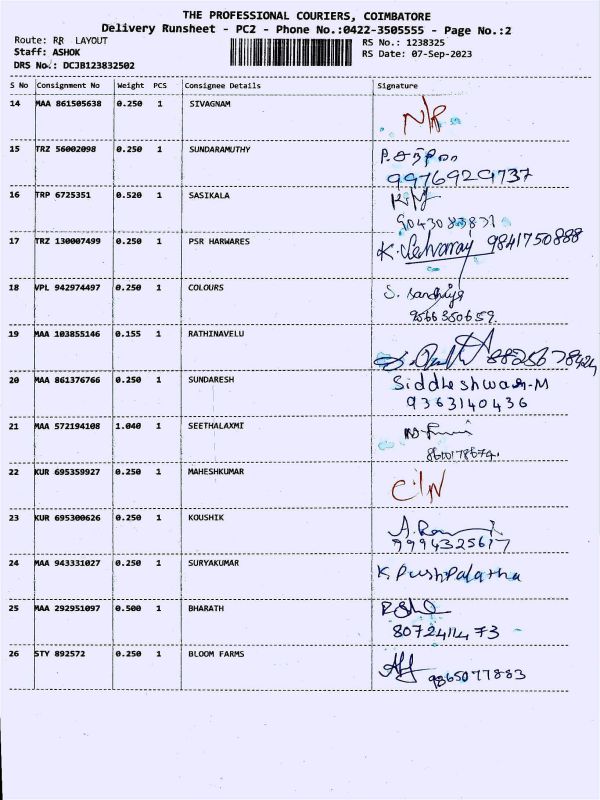 THE PROFESSIONAL COURIERS, COIMBATORE
Delivery Runsheet - PC2 - Phone No.:0422-3505555 - Page No.:2
Route: RR LAYOUT
RS No.: 1238325
Staff: ASHOK
RS Date: 07-Sep-2023
DRS No.: DCJB123832502
S No Consignment No Weight PCS Consignee Details Signature
14 MAA 861505638 0.250 1 SIVAGNAM N/R
15 TRZ 56002098 0.250 1 SUNDARAMUTHY
9976929737
16 TRP 6725351 0.520 1 SASIKALA
17 TRZ 130007499 0.250 1 PSR HARWARES K. Selvaraj 9841750888
18 VPL 942974497 0.250 1 COLOURS S. Sandhiya
9566350659.
19 MAA 103855146 0.155 1 RATHINAVELU
20 MAA 861376766 0.250 1 SUNDARESH Siddheshwaran-M
9363140436
21 MAA 572194108 1.040 1 SEETHALAXMI
22 KUR 695359927 0.250 1 MAHESHKUMAR
23 KUR 695300626 0.250 1 KOUSHIK
9994325617
24 MAA 943331027 0.250 1 SURYAKUMAR K. Pushpalatha
25 MAA 292951097 0.500 1 BHARATH
8072411473
26 STY 892572 0.250 1 BLOOM FARMS
9865077883